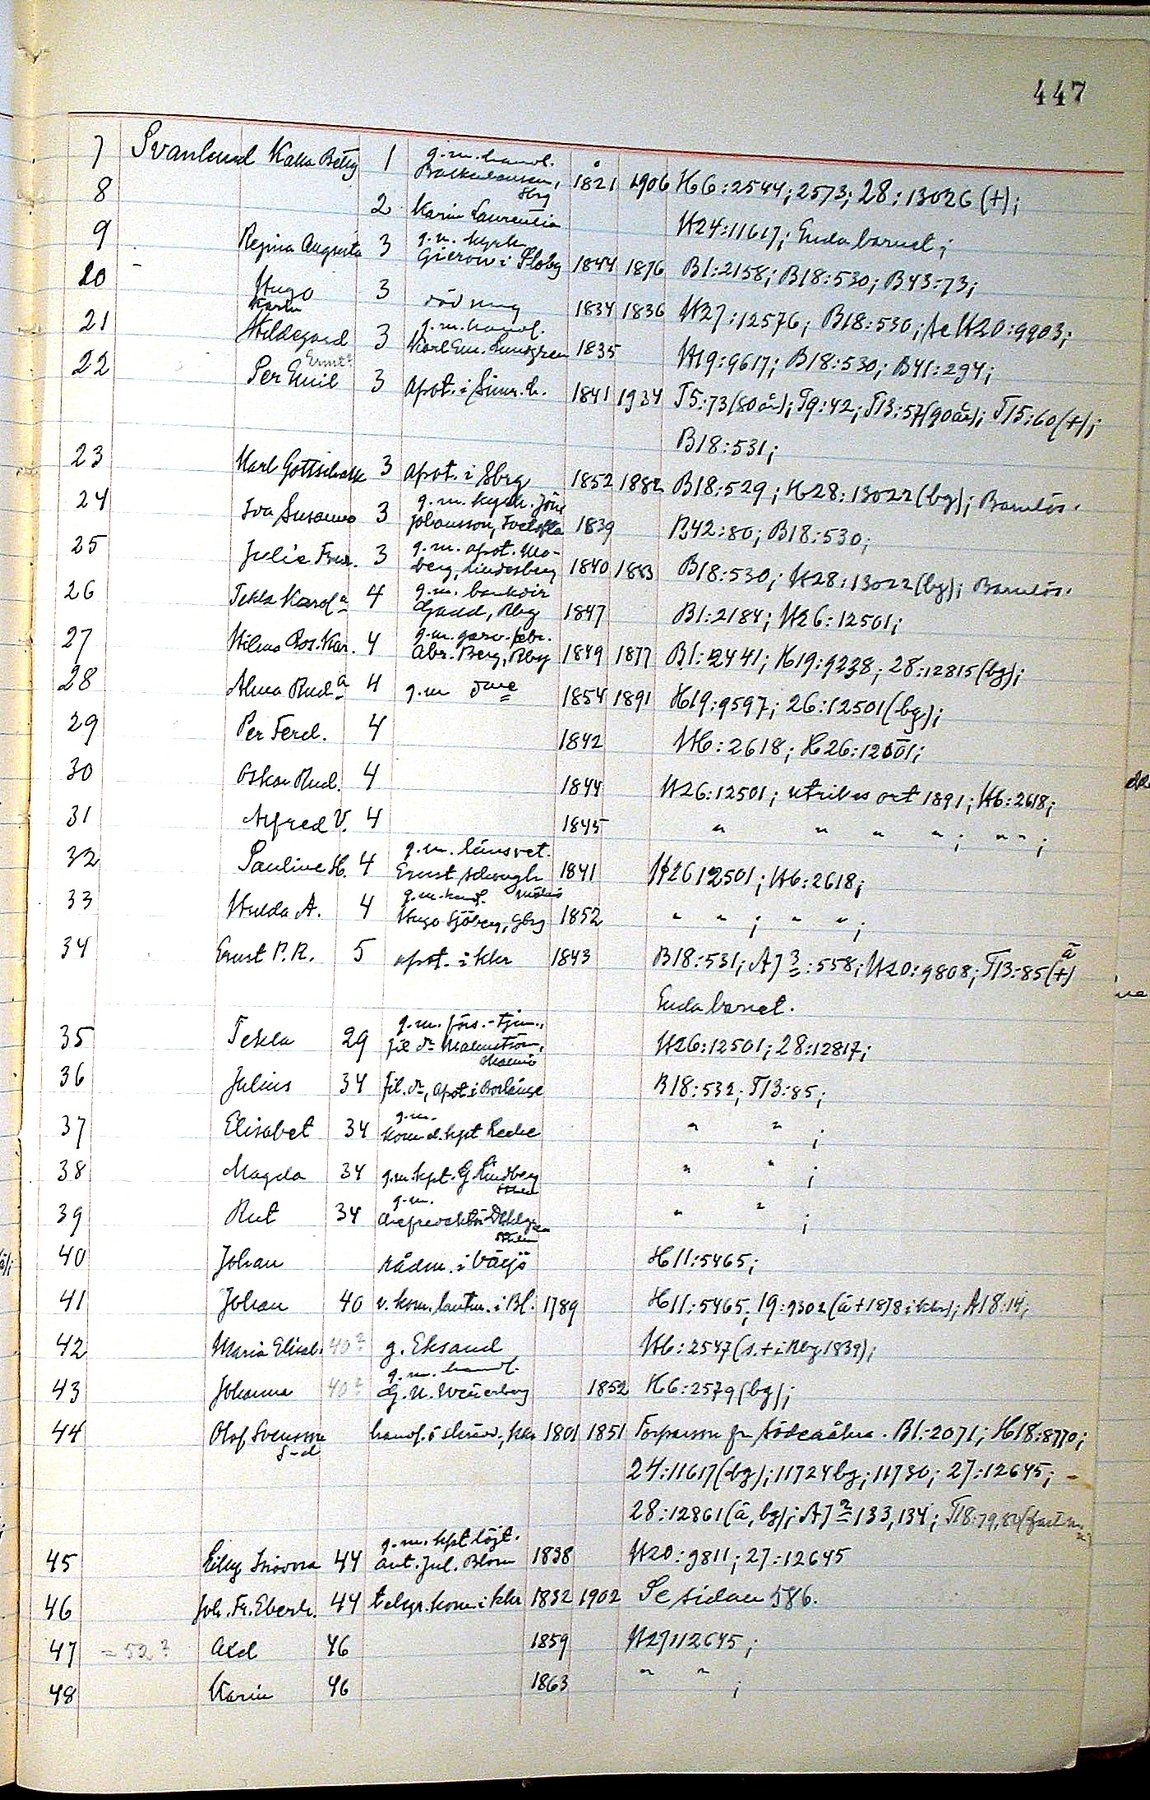 447
7 Svanlund Kata Betty 1 g.m. handl. Backenhausen, Hbg 1821 1906 H6:2544; 2573; 28:13026 (+);
8 2 Karin Laurentia H24:11617; Enda barnet;
9 Regina Augusta 3 g.m. kyrk. Gierow i Floby 1844 1876 B1:2158; B18:530; B43:73;
20 Hugo 3 död ung 1834 1836 H27:12576; B18:530; Ae H20:9903;
21 Karin Hildegard 3 g.m. handl. Karl Em. Lundgren 1835 H19:9617; B18:530; B41:294;
22 Per Emil Ernst? 3 apot. i Simr.h. 1841 1934 T5:73(80 år); T9:42; T13:57(90 år); T15:60(+);
B18:531;
23 Karl Gottschalk 3 apot. i Hbrg 1852 1882 B18:529; H28:13022(bg); Barnlös.
24 Iva Susanna 3 g.m. kyrk. Jöns Johansson, 1839 B42:80; B18:530;
25 Julie Fred. 3 g.m. apot. Moberg, Lindesberg 1840 1883 B18:530; H28:13022(bg); Barnlös.
26 Tekla Karola 4 g.m. bankdir Gadd, Rby 1847 B1:2184; H26:12501;
27 Hilma Ros. Kar. 4 g.m. garv.-fabr. Abr. Berg, Rby 1849 1877 B1:2441; H19:9238; 28:12815(bg);
28 Alma Rud.a 4 g.m. d:me 1854 1891 H19:9597; 26:12501(bg);
29 Per Ferd. 4 1842 H6:2618; H26:12501;
30 Oskar Rud. 4 1844 H26:12501; utrikes ort 1891; H6:2618;
31 Alfred V. 4 1845 " " " " ; " " ;
32 Pauline H. 4 g.m. länsvet. Ernst Schough 1841 H26 12501; H6:2618;
33 Hulda A. 4 g.m. handl. Hugo Sjöberg, Gbg 1852 " " ; " " ;
34 Ernst P.R. 5 apot. i khr 1843 B18:531; A7 3:558; H20:9808; T13:85(+)
Enda barnet.
35 Tekla 29 g.m. förs.-tjm., fil dr Malmström, Malmö H26:12501; 28:12817;
36 Julius 34 fil. dr, apot i Borlänge B18:532; T13:85;
37 Elisabet 34 g.m. kom.d. kpt Recke " " ;
38 Magda 34 g.m. kpt. G Lindberg Sthlm " " ;
39 Rut 34 g.m. Dahlgren Sthlm " " ;
40 Johan rådm. i Växjö H11:5465;
41 Johan 40 v. kom. lantm. i Bl. 1789 H11:5465, 19:9302(ä +1878 i khr); A18:14;
42 Maria Elisab. 40? g. Eksand H6:2547(s.+ i Rby 1839);
43 Johanna 40? g.m. handl. G.N. Wetterberg 1852 H6:2579(bg);
44 Olof Svensson S-d handl. o skräd., khr 1801 1851 Torparson fr Södeaåkra. B1:2071; H18:8770;
24:11617(bg); 11724 bg; 11730; 27:12645; -
28:12861(ä, bg); A7 2:133,134; T18:79,82
45 Elly 44 g.m. kpt löjt. Ant. Jul. Blom 1838 H20:9811; 27:12645
46 Joh. Fr. Eberh. 44 telegr.kom i khr 1832 1902 Se sidan 586.
47 = 52? Axel 46 1859 H27112645;
48 Karin 46 1863 " " ;